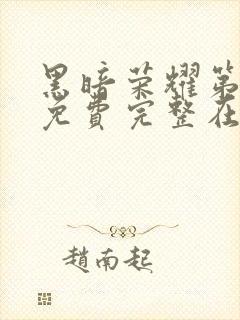 黑暗荣耀第
免費完整在
趙南起